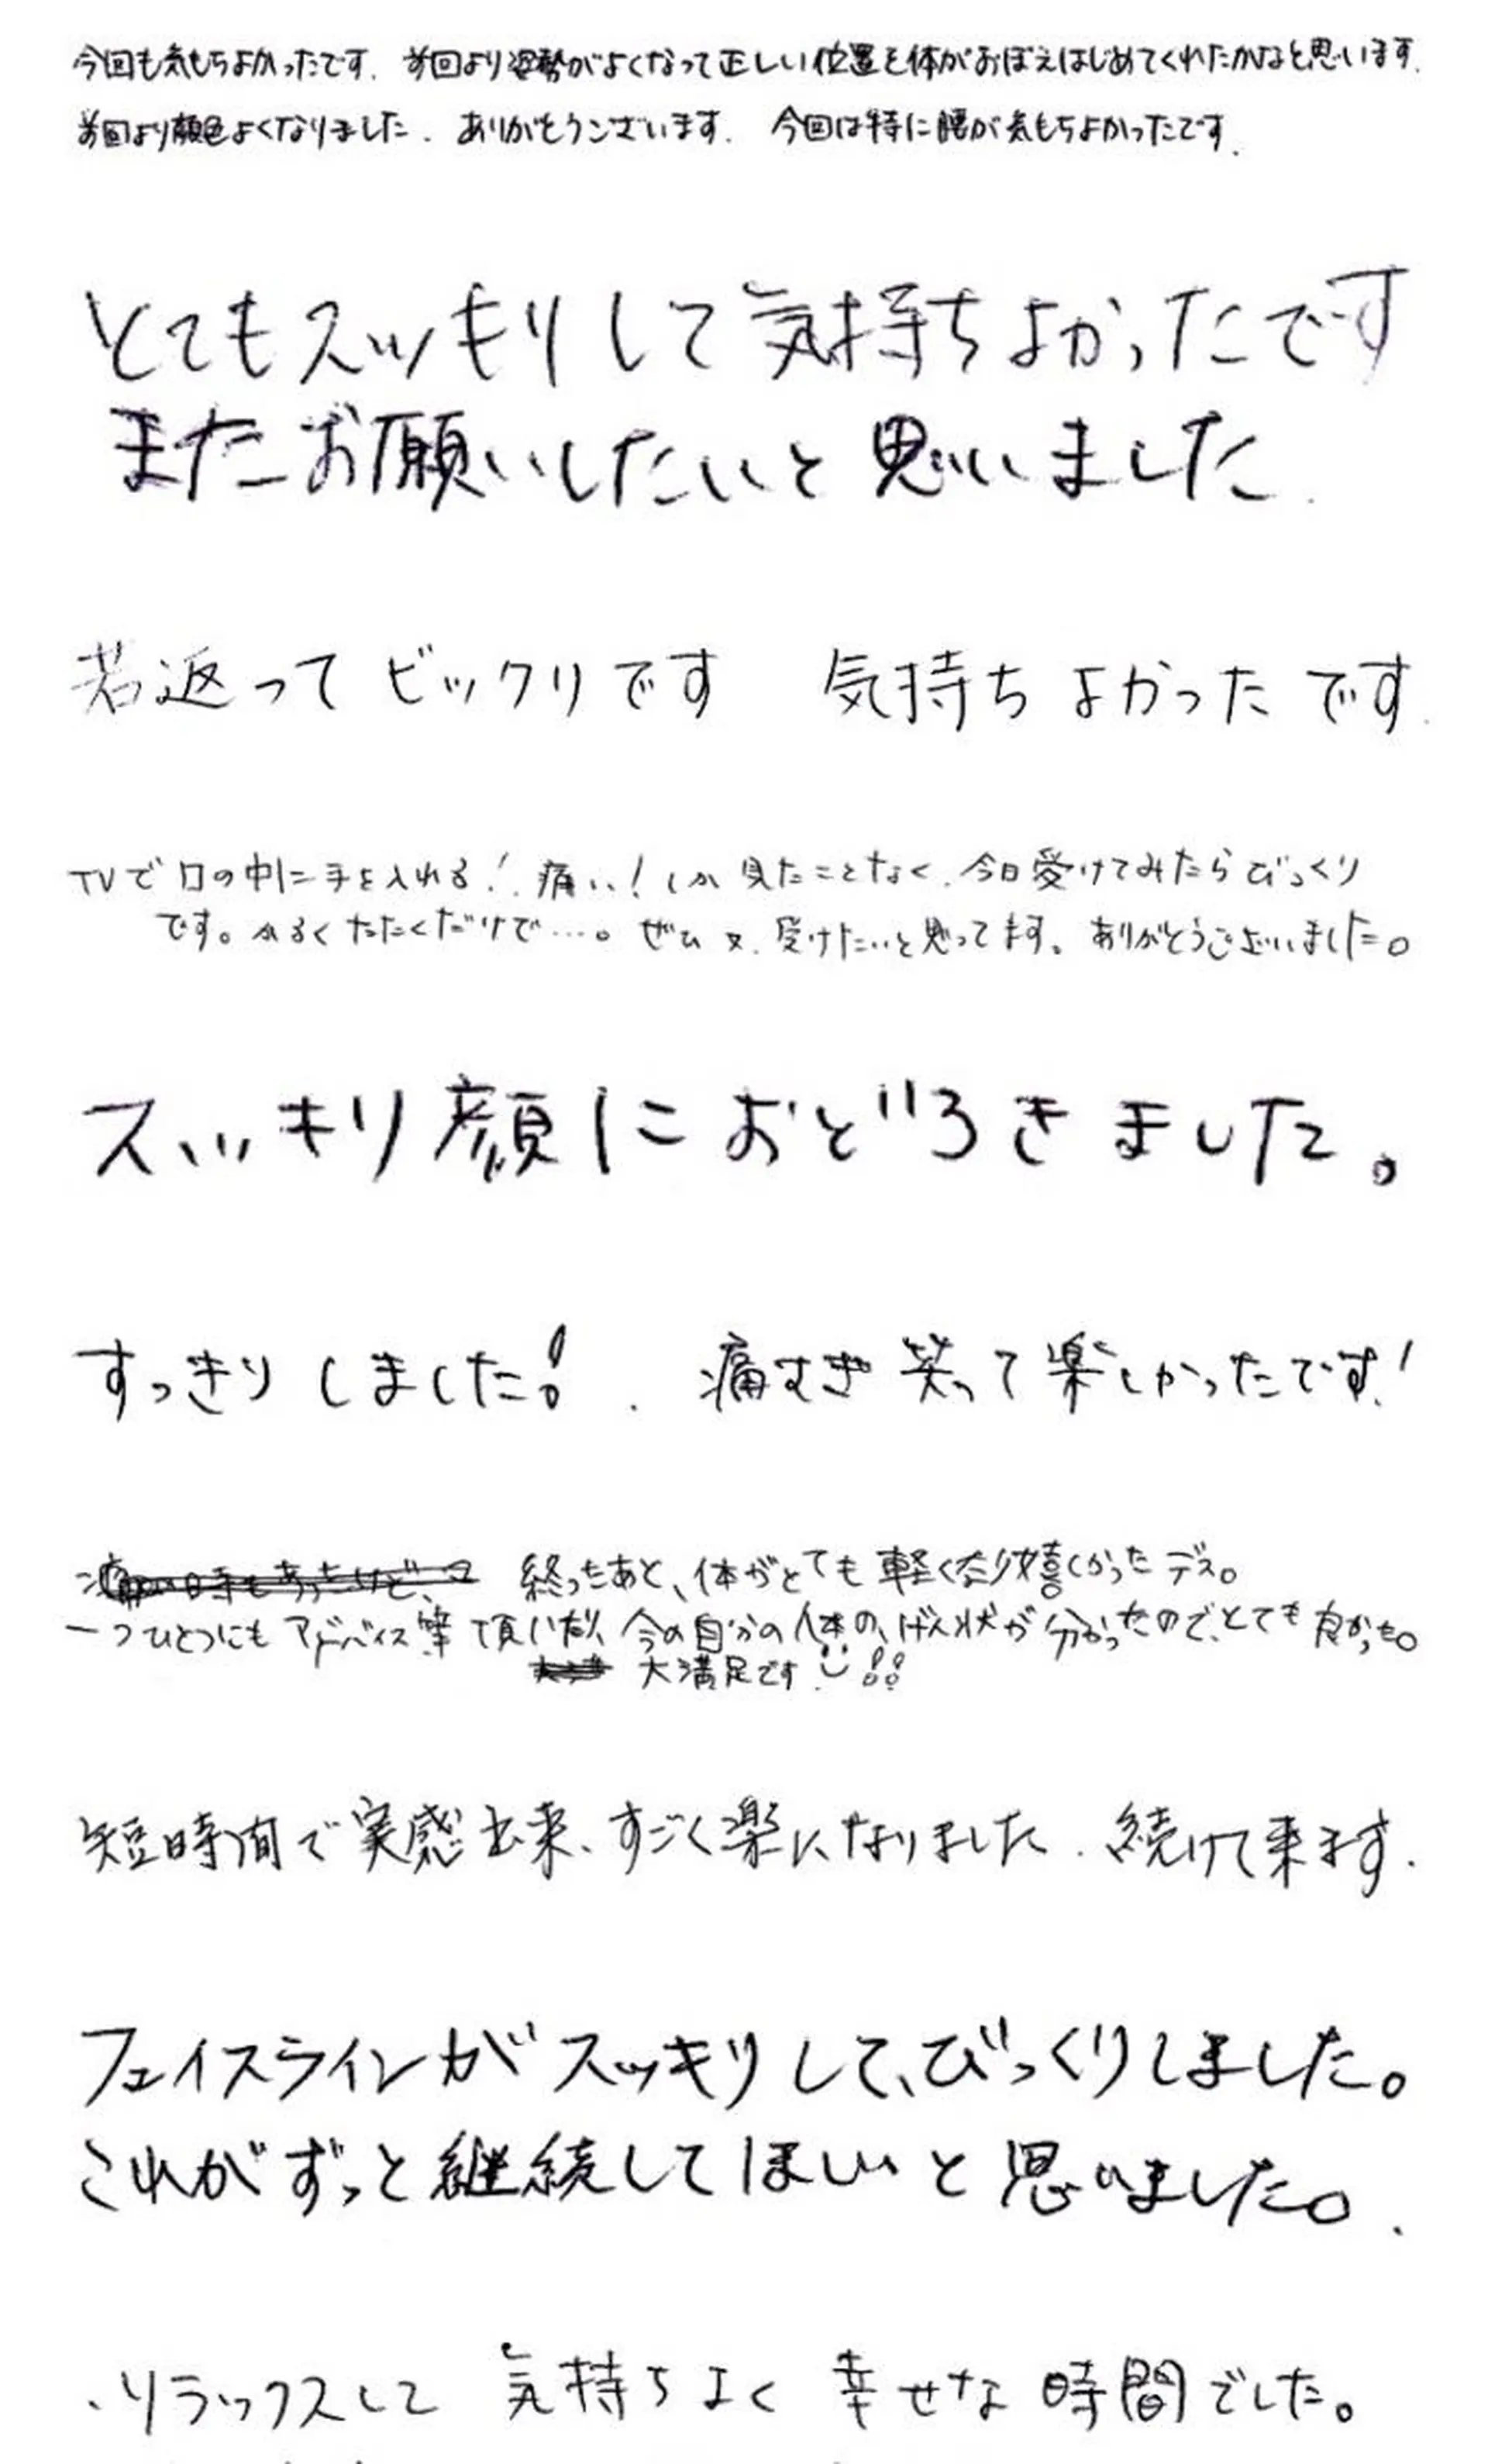 今回も気もちよかったです. 前回より姿勢がよくなって正しい位置を体がおぼえはじめてくれたかなと思います.
前回より顔色よくなりました. ありがとうございます. 今回は特に腰が気もちよかったです.
とてもスッキリして気持ちよかったです
またお願いしたいと思いました.
若返ってビックリです 気持ちよかったです.
TVで口の中に手を入れる!. 痛い! しか見たことなく. 今日受けてみたらびっくり
です。かるくたたくだけで…。ぜひ又. 受けたいと思ってます。ありがとうございました。
スッキリ顔におどろきました。
すっきりしました!. 痛すぎ笑って楽しかったです!
終ったあと、体がとても軽くなり嬉しかったデス。
一つひとつにもアドバイス等頂いたり、今の自分の体の、げん状が分かったので、とても良かった。
大満足です!!
短時間で実感出来、すごく楽になりました. 続けて来ます.
フェイスラインがスッキリして、びっくりしました。
これがずっと継続してほしいと思いました。.
・リラックスして 気持ちよく 幸せな時間でした。